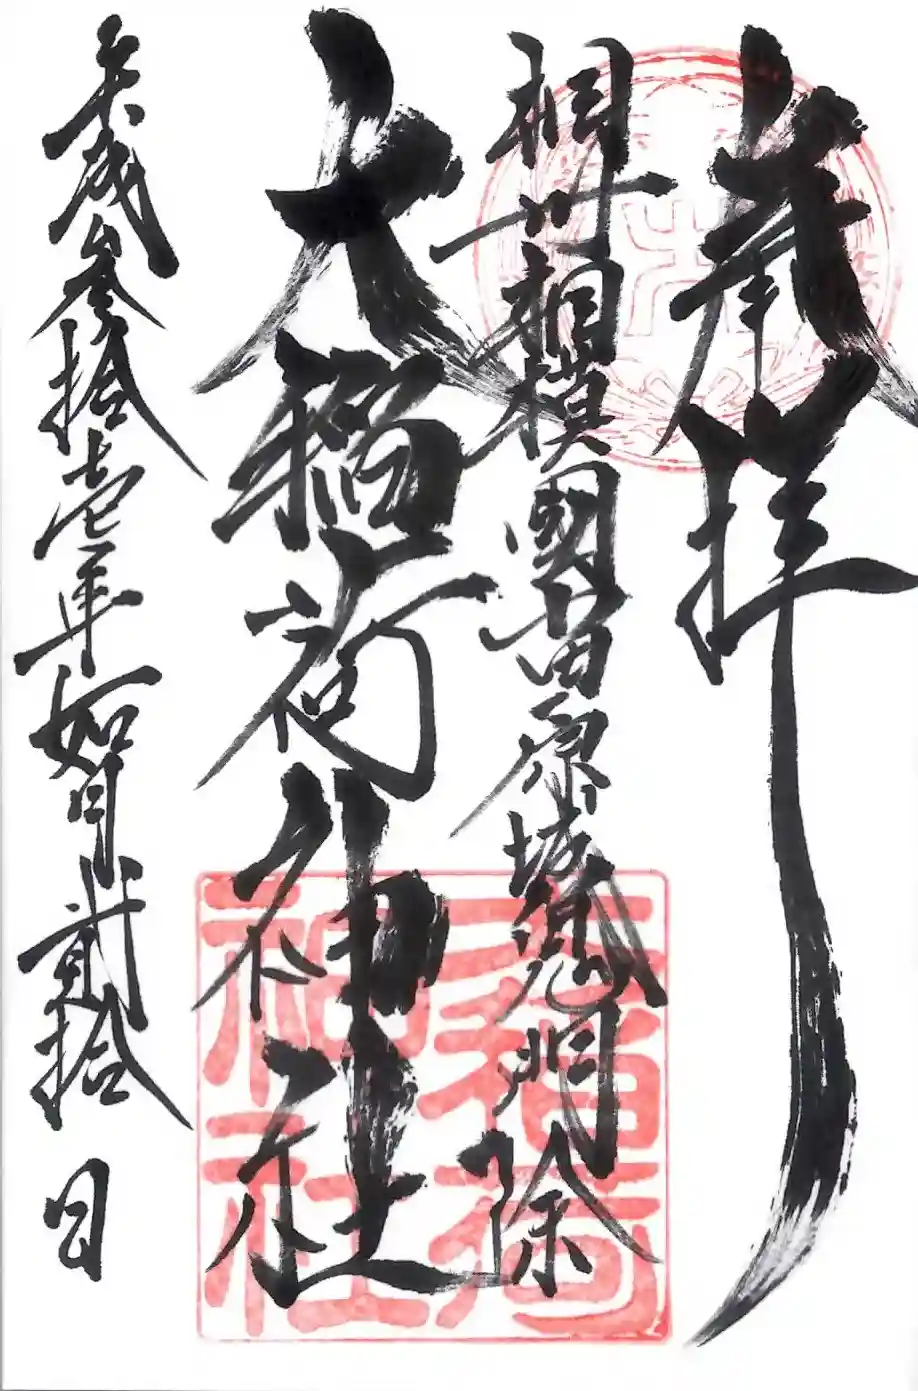 奉拝
相州相模國小田原城鬼門除
大稲荷神社
平成参拾壱年如月貳拾日
大稲荷神社